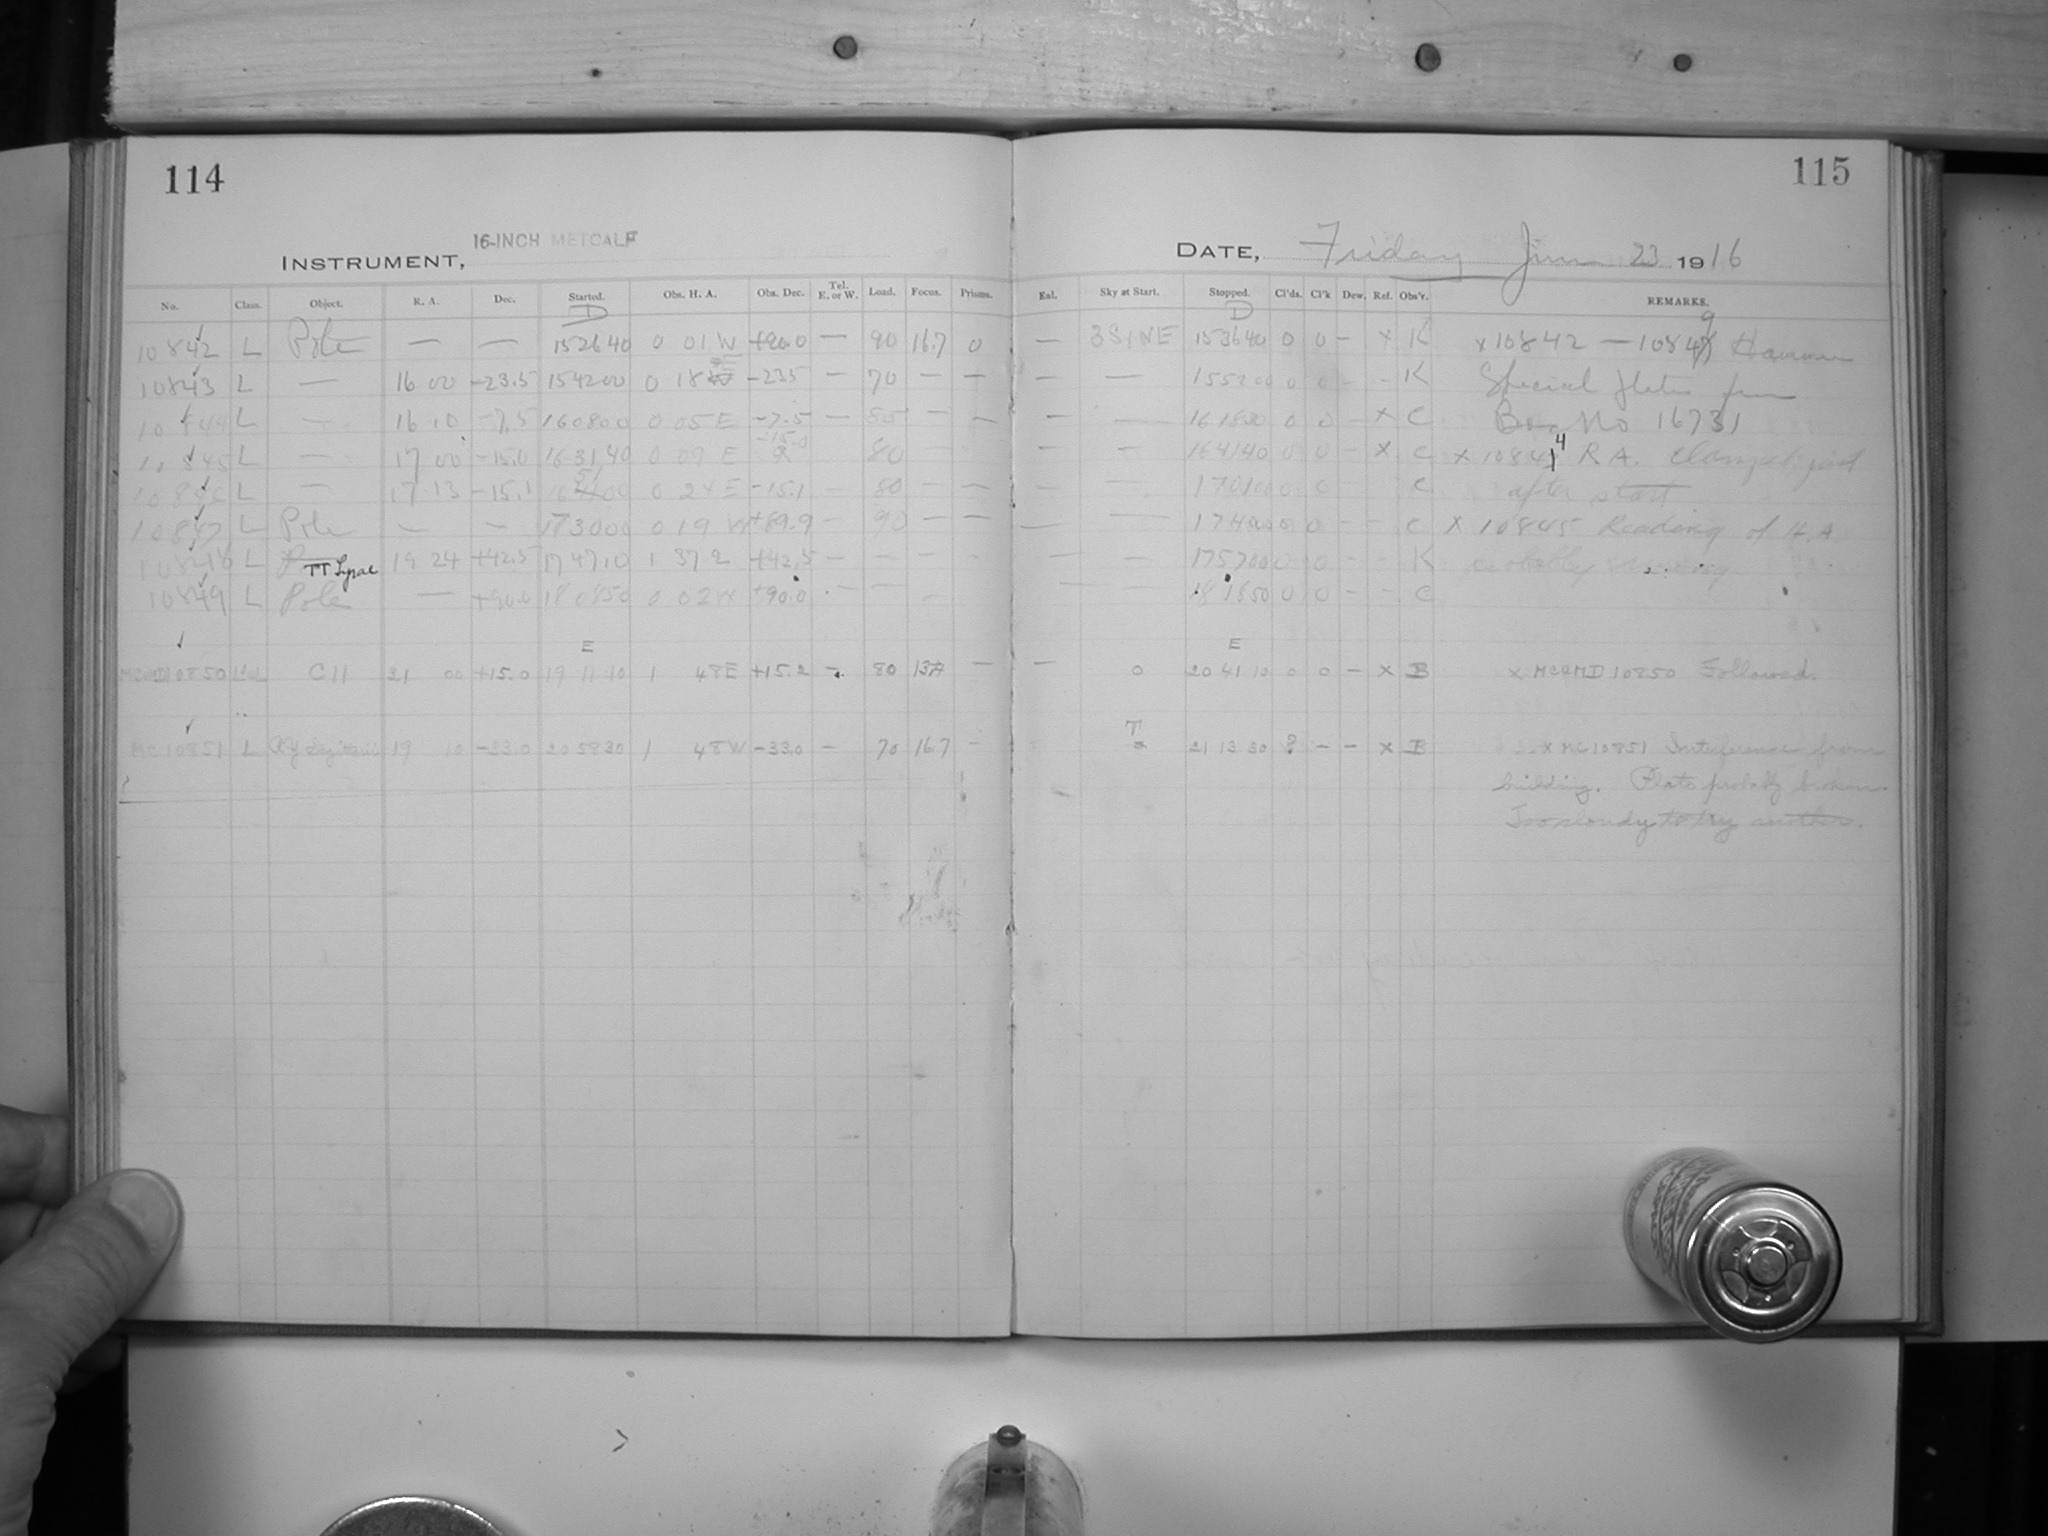 114
115
16-INCH METCALF
INSTRUMENT,
DATE, Friday June 23 1916
No. Class. Object. R. A. Dec. Started. Obs. H. A. Obs. Dec. Tel. E. or W. Load. Focus. Prisms. Eal. Sky at Start. Stopped. Cl'ds. Cl'k Dew. Ref. Obs'r. REMARKS.
D D
10842 L Pole — — 152640 0 01 W +90.0 — 90 16.7 0 — 3S1NE 153640 0 0 - x K x 10842 — 10849
10843 L — 16 00 -23.5 154200 0 18 -23.5 — 70 — — — — 155200 0 0 - - K Special plates for
10844 L — 16 10 -7.5 160800 0 05 E -7.5 — 85 — — — — 161800 0 0 - x C Box No 16731
10845 L — 17 00 -15.0 163140 0 09 E -15.0 — 80 — — 164140 0 0 - x C x 10844 R A. Clamped just
10846 L — 17 13 -15.1 0 24 E -15.1 — 80 — — — — 170100 0 0 C after start
10847 L Pole — — 173000 0 19 W +89.9 — 90 — — — — 174000 0 0 - - C x 10845 Reading of H.A
10848 L TT Lyrae 19 24 +42.5 174710 1 37 2 +42.5 — — — — — — 175700 0 0 - - K probably
10849 L Pole — +90.0 180850 0 02 W +90.0 — — — — — — 181850 0 0 - - C
E E
10850 L C11 21 00 +15.0 19 11 10 1 48E +15.2 - 80 — — 0 20 41 10 0 0 - x B x MC&MD 10850 Followed.
T
MC10851 L AY Sagittarii 19 10 -33.0 20 58 30 1 48W -33.0 - 70 16.7 - 21 13 30 ? - - x B x MC10851 Interference from
building. Plate probably broken.
Too cloudy to try another.